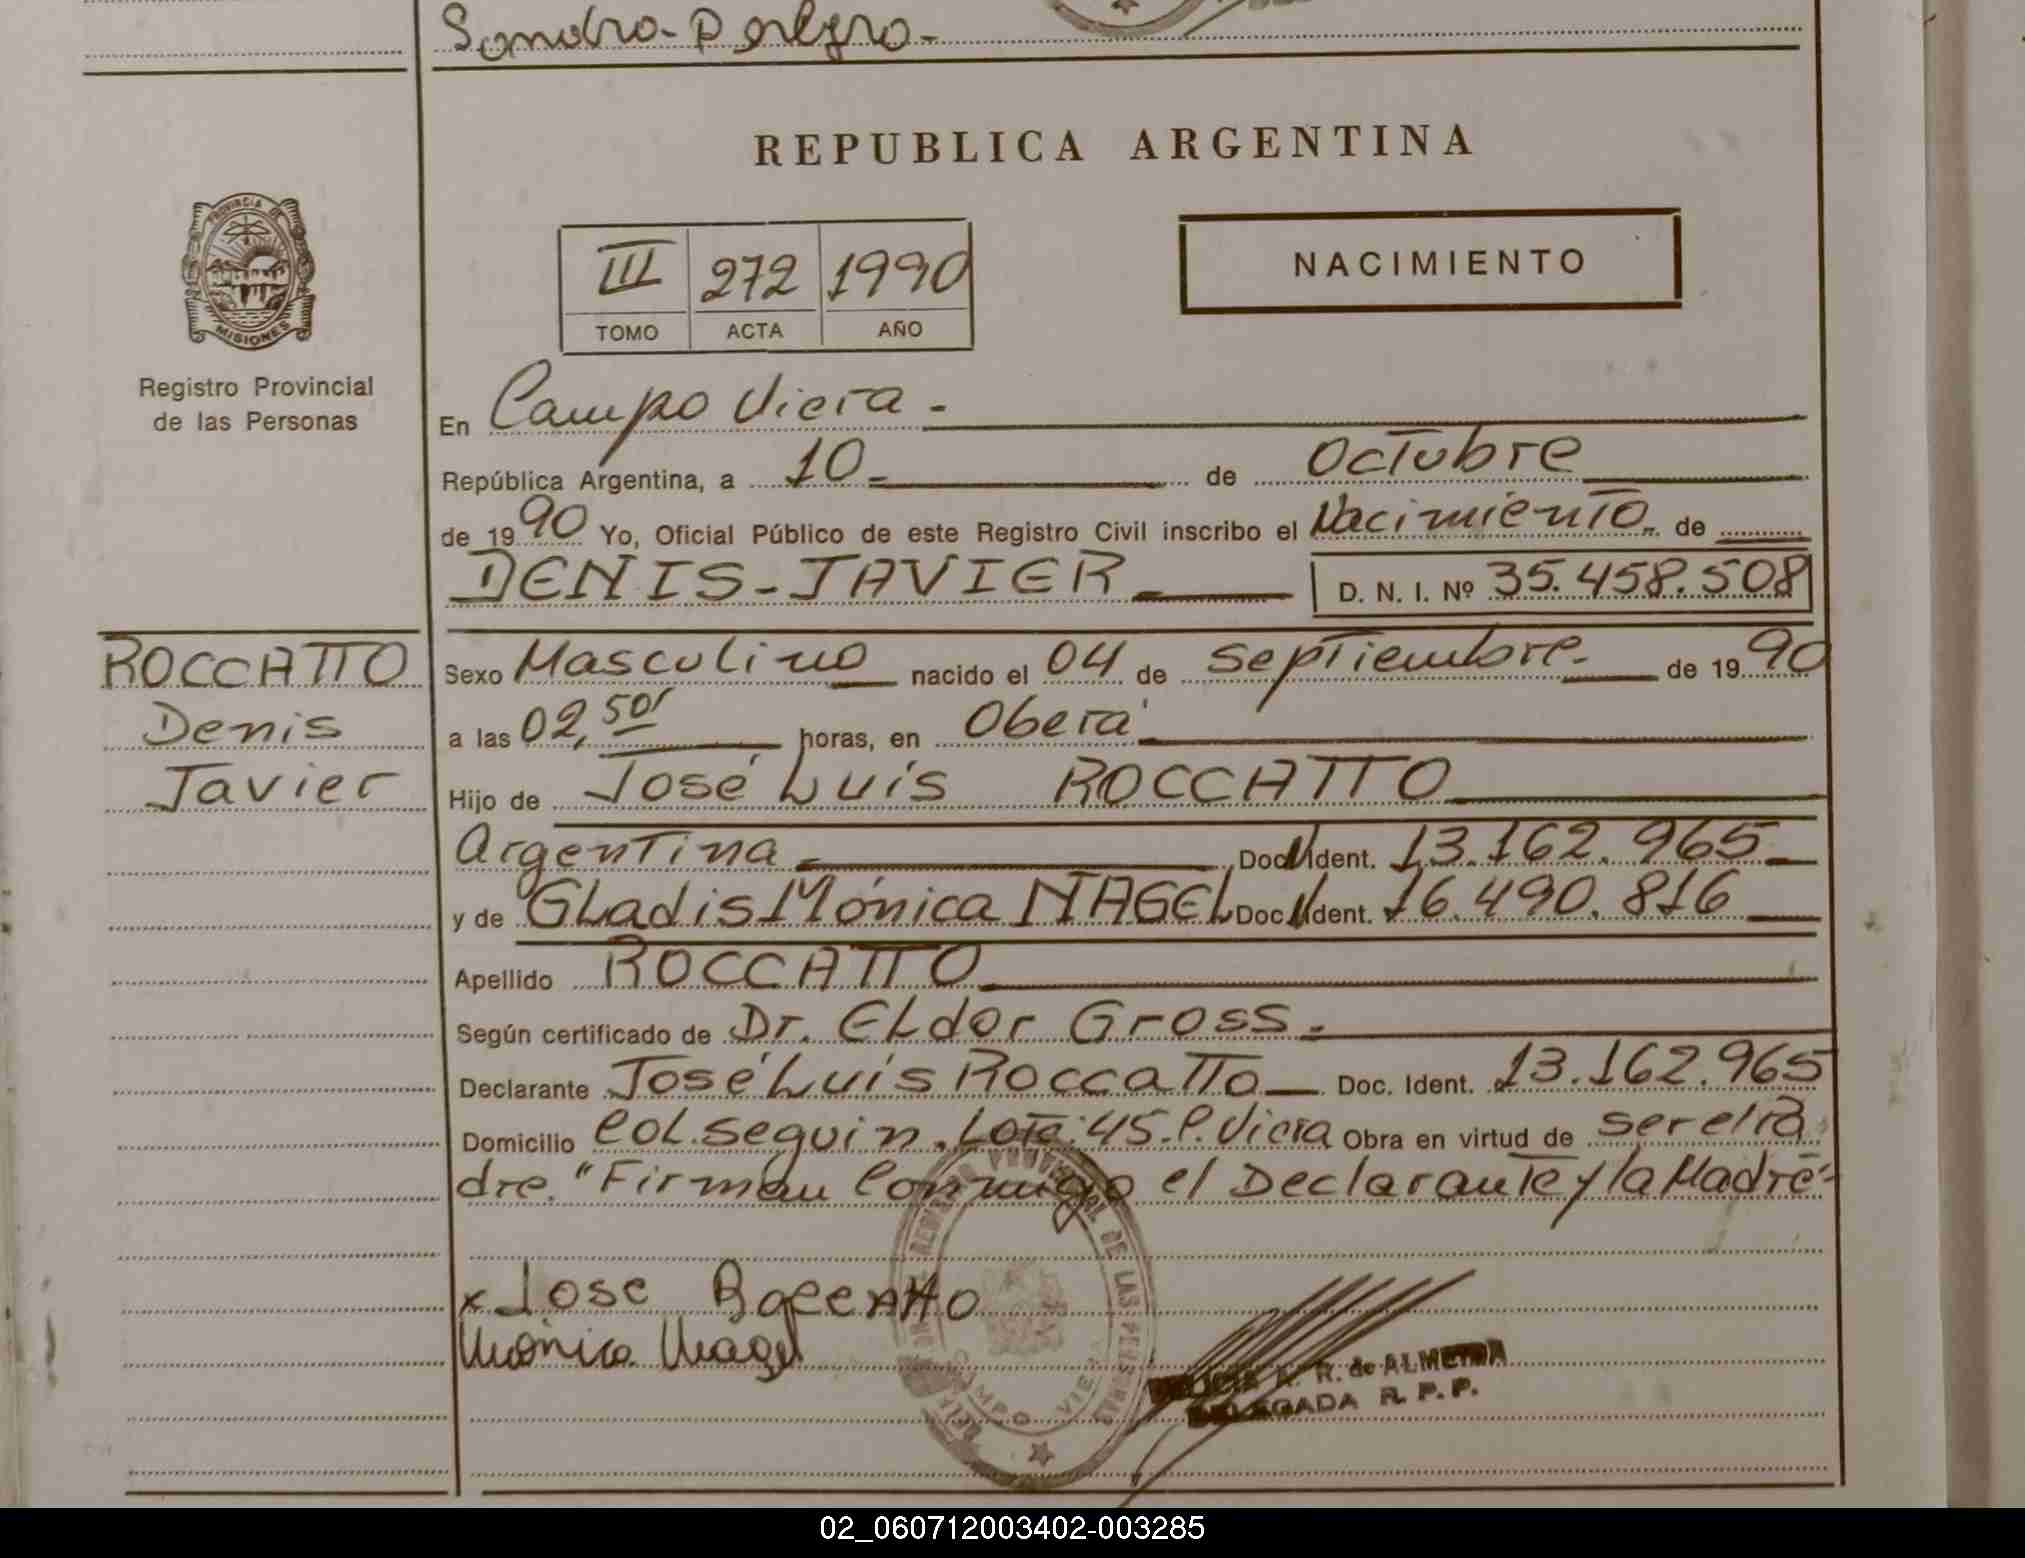 Sandro Pelyro.-
REPUBLICA ARGENTINA
PROVINCIA DE
MISIONES
Registro Provincial
de las Personas
III 272 1990
TOMO ACTA AÑO
NACIMIENTO
En Campo Viera.-
República Argentina, a 10.- de Octubre
de 1990 Yo, Oficial Público de este Registro Civil inscribo el Nacimiento.. de
DENIS-JAVIER.- D. N. I. Nº 35.458.508
ROCCATTO
Denis
Javier
Sexo Masculino nacido el 04 de septiembre.- de 1990
a las 02,50' horas, en Oberá
Hijo de José Luís ROCCATTO
Argentina.- Doc. Ident. 13.162.965.-
y de GLadis Mónica NAGEL Doc. Ident. 16.490.816
Apellido ROCCATTO
Según certificado de Dr. ELdor Gross.-
Declarante José Luís Roccatto Doc. Ident. 13.162.965
Domicilio Col. Seguin. Lote: 45. C. Viera Obra en virtud de ser el Pa
dre. "Firman Conmigo el Declarante y la Madre"-
x Jose Roccatto
Mónica Nagel
REGISTRO PROVINCIAL DE LAS PERSONAS
CAMPO VIERA
A. R. de ALMEIDA
DELEGADA R. P. P.
02_060712003402-003285